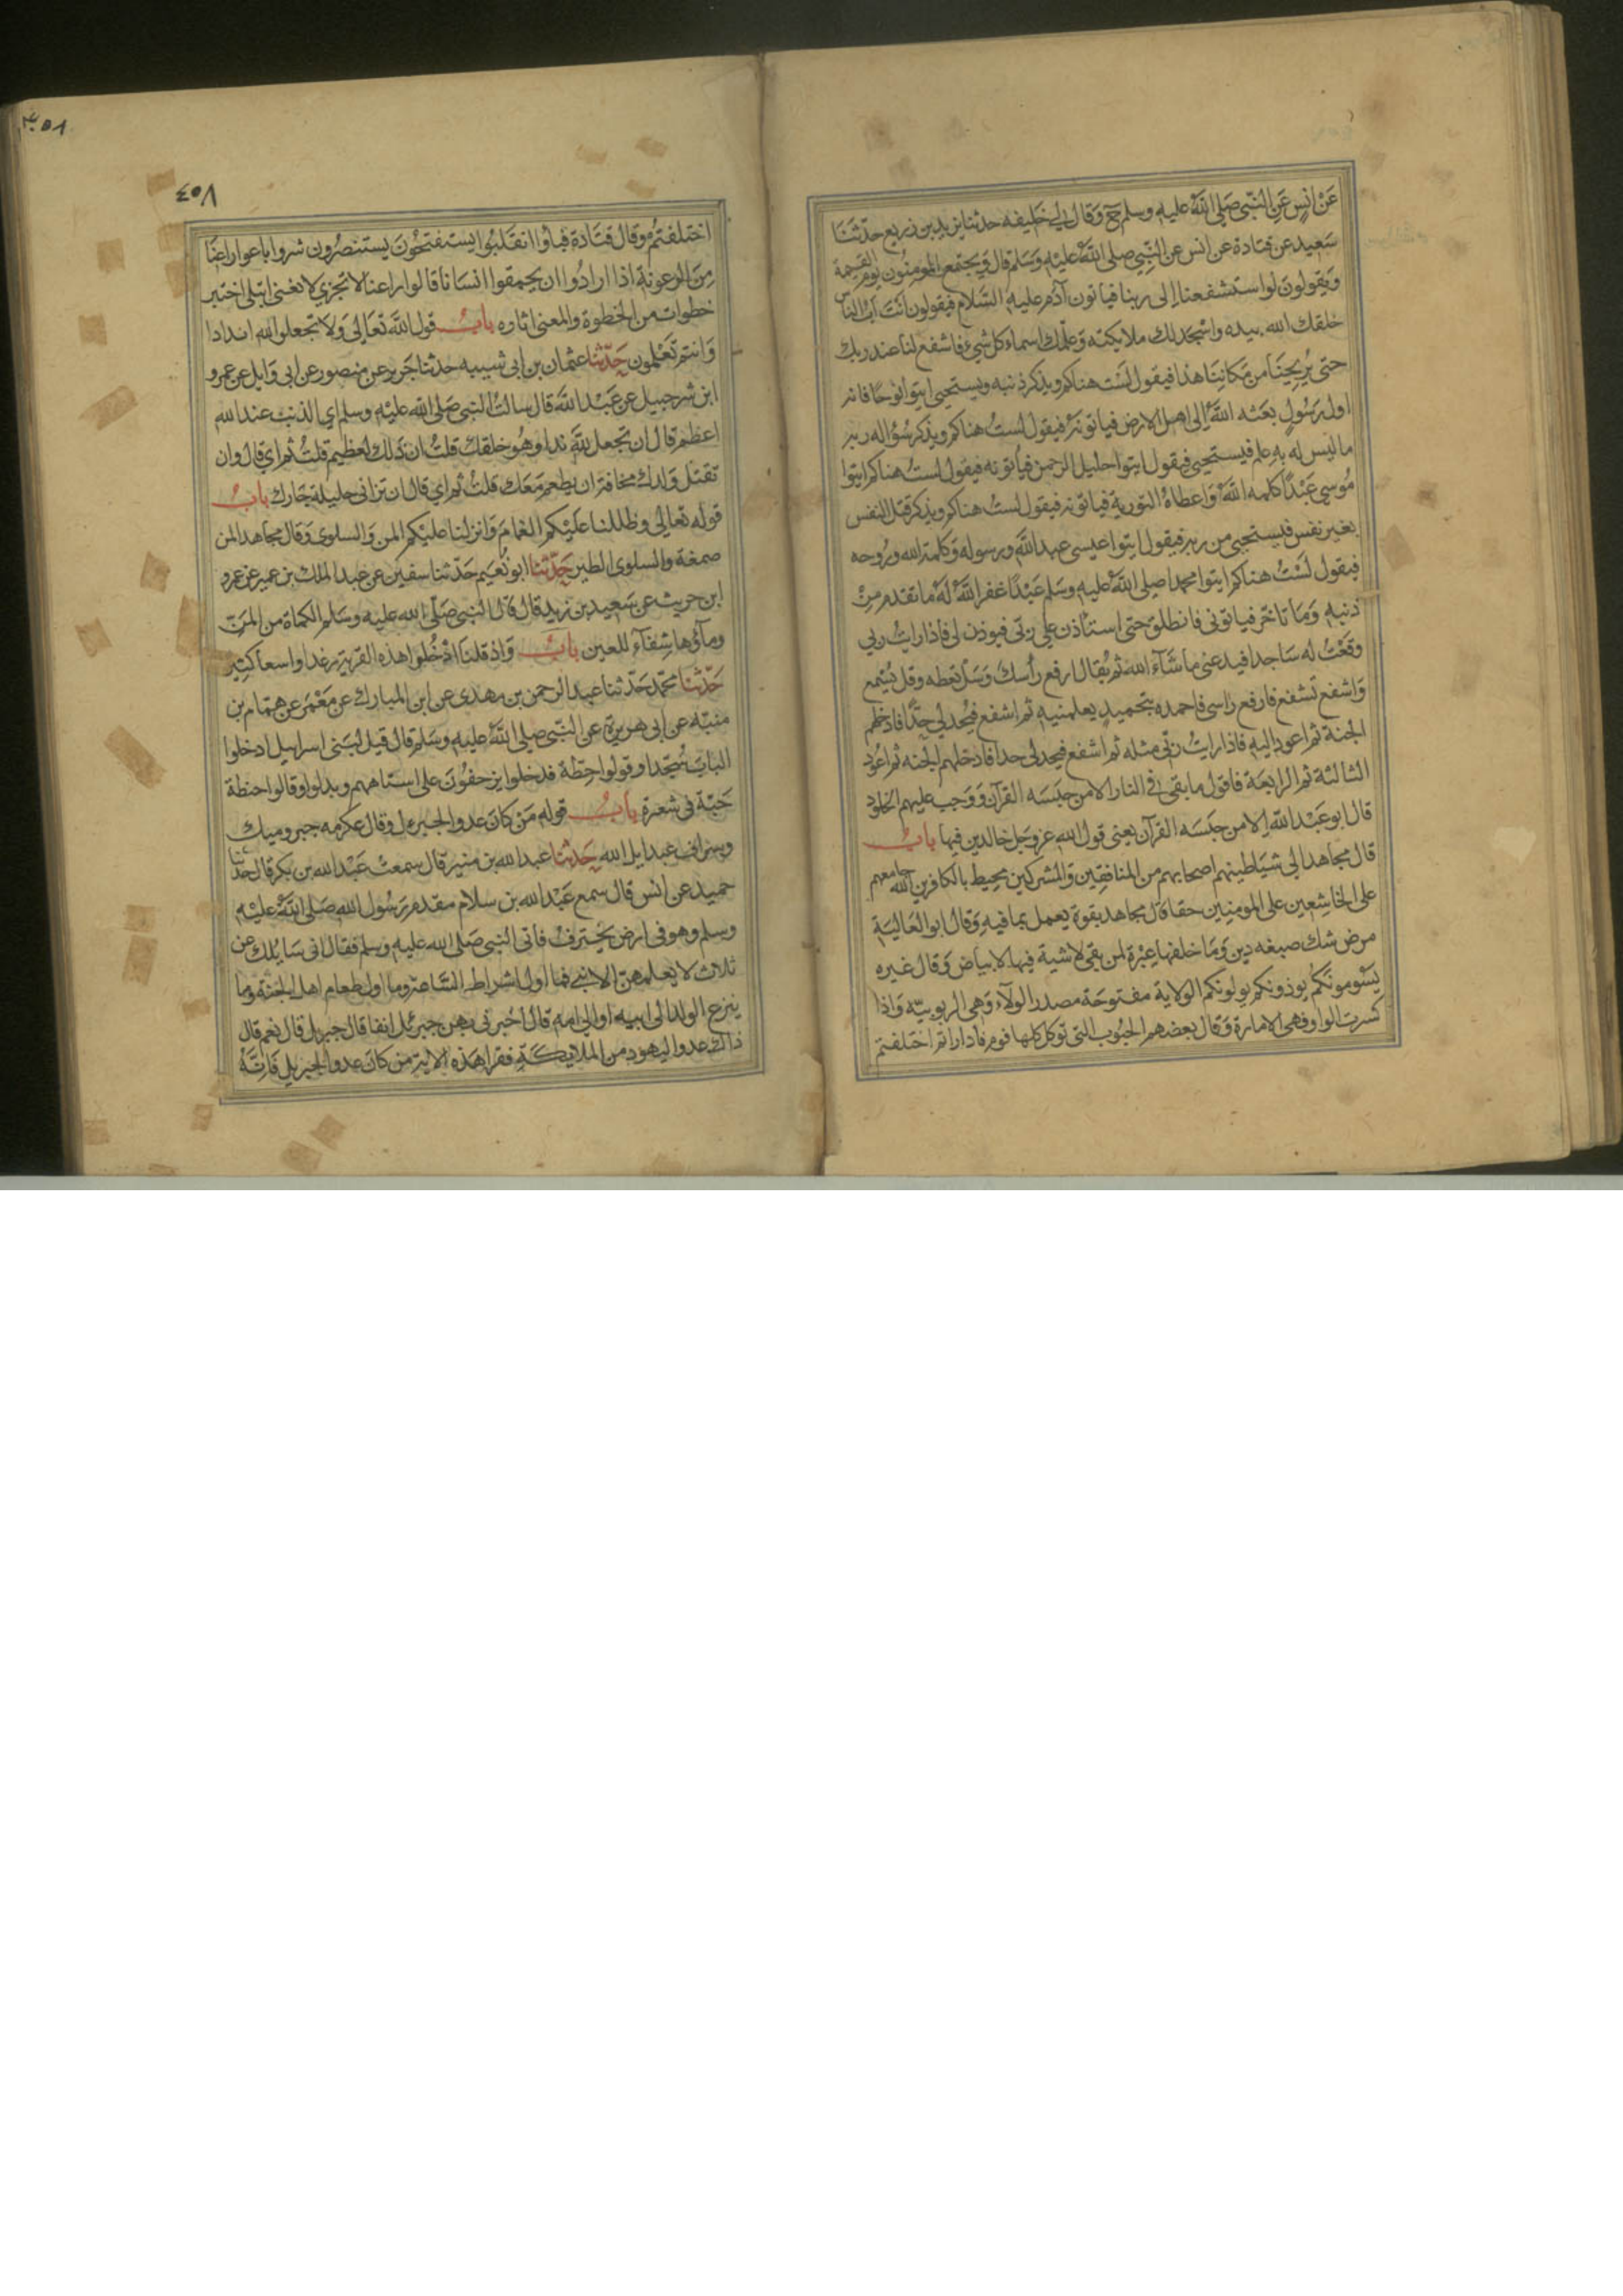 عَنْ انسٍ عَنِ النّبي صَلى اللّهُ عليه وسلم ح وَقال لى خليفه حدثنا يزيد بن زريع حدّثنا
سَعيد عن قتادة عن انس عن النّبي صلى اللّهُ عليه وَسَلم قال وَيجتمع المومِنُون يوم القيمة
ويَقولونَ لو استشفعنا الى ربنا فياتون آدم عليه السَّلام فيقولون انتَ ابُ الناس
خلقك الله بيده واسْجَد لك ملايكته وَعلّمك اسماء كل شيء فاشفع لنا عند ربك
حتى يُرِيحَنا من مَكانِنَا هذا فيقول لسْتُ هناكم ويذكر ذنبه ويستحيى ايتوا نوحًا فانه
اول رَسُولٍ بعَثه اللّهُ الى اهل الارض فياتونه فيقول لستُ هناكم ويذكر سُؤاله ربه
ما ليس له به علم فيستحيى فيقول ايتوا خليل الرحمن فياتونه فيقول لستُ هناكم ايتوا
مُوسى عَبْدًا كلمه اللّهُ وَاعطاهُ التورية فياتونه فيقول لستُ هناكم ويذكر قتل النفس
بغير نفس فيستحيى من ربه فيقول ايتوا عيسى عبد اللّه ورسوله وَكلمة الله وروحه
فيقول لسْتُ هناكم ايتوا محمدا صلى اللّهُ عليه وسَلم عَبْدًا غفر اللّهُ لهُ ما تقدم مِنْ
ذنبه وَمَا تاخّر فياتونى فانطلق حتى استاذن على ربّى فيوذن لى فاذا رايتُ ربي
وقعْتُ له سَاجدا فيدعنى ما شَآءَ الله ثم يُقالُ ارفع رأسك وَسَلْ تعطه وقل يُسْمع
وَاشفع تشفع فارفع رَاسى فاحمده بتحميدٍ يعلمنيه ثم اشفع فيُحد لي حدًّا فادخلهم
الجنة ثم اعود اليه فاذا رايتُ ربّى مثله ثم اشفع فيحد لى حدا فادخلهم الجنه ثم اعُود
الثالثة ثم الرابعَة فاقول ما بقى في النار الا من حبَسَه القرآن وَوَجب عليهم الخلود
قال ابو عَبْد اللّه الا من حبَسَه القرآن يعنى قول الله عز وجل خالدين فيها بابٌ
قال مجاهد الى شيَاطينهم اصحابهم من المنافقين وَالمشركين محيط بالكافرين اللّه جامعهم
على الخاشِعين على المومنِين حقا قال مجاهد بقوة يعمل بما فيه وَقال ابو العَاليَة
مرض شك صبغه دين وَمَا خلفها عِبْرة لمن بقى لا شية فيها لا بياض وَقال غيره
يَسُومُونَكُم يوذونكم يولونكم الولاية مفتوحَة مصدر الولآء وَهى الربوبيّه وَاذا
كسرت الواو فهى الامارة وَقال بعضهم الحبُوب التى توكل كلها فوم فادارأتم اختلفتم
٤٥٨
اختلفتُم وقال قتَادة فبآؤا انقَلبُوا يستفتحُونَ يستنصرُون شروا باعوا راعنَا
مِنَ الرعونة اذا ارادُوا ان يحمقوا انسَانا قالوا راعنا لا تجزي لا تغنى ابتلى اختبر
خطوات من الخطوة والمعنى اثاره بابٌ قول اللّه تعَالىَ وَلا تجعلوا لله اندادا
وَانتم تَعْلمون حَدّثنا عثمان بن ابى شيبه حدثنا جَرير عن منصور عن ابى وَايل عن عمرو
ابن شرحبيل عن عَبْد اللّه قال سالتُ النبى صَلى اللّه عليْه وسلم اي الذنب عند الله
اعظم قال ان تجعل للّه ندا وهُو خلقك قلتُ ان ذلك لعظيم قلتُ ثم اي قال وان
تقتل وَلدك مخافة ان يطعم مَعَك قلتُ ثم اي قال ان تزانى حليلة جَارك بابٌ
قوله تعالى وظللنا علَيْكم الغمامَ وَانزلنا عليْكم المن وَالسلوى وَقال مجاهد المن
صمغة والسلوى الطير حَدّثنا ابو نُعيم حَدّثنا سفين عن عبد الملك بن عمير عن عمرو
ابن حريث عن سَعيد بن زيد قال قال النبى صَلّى الله عليه وسَلم الكماة من المنّ
ومآؤها شِفآء للعين بابٌ وَاذ قلنا ادْخُلوا هذه القرية رغدا واسعا كثير
حَدّثنا محمّد حَدّثنا عبد الرحمن بن مهدى عن ابن المبارك عن مَعْمَر عن همّام بن
منبّه عن ابى هريرة عن النّبى صلى اللّهُ عليه وسَلم قال قيل لبَنى اسراييل ادخلوا
البابَ سُجّدا وقولوا حِطّة فدخلوا يزحفُونَ على استاههم وبدلوا وقالوا حنطة
حَبّة في شعرة بابُ قوله مَن كانَ عدوا لجبريل وقال عكرمه جبر وميك
وسراف عبد ايل الله حَدّثنا عبد الله بن منير قال سمعتُ عَبْد الله بن بكر قال حدثنا
حميد عن انس قال سمع عَبْد الله بن سلام مقدم رَسُول الله صَلى اللّهُ عليْه
وسلم وهو في ارض يَخْترفُ فاتى النبى صَلى الله عليه وسلم فقال انى سَايلك عن
ثلاث لا يعلمهن الا نبى فما اول اشراط السَّاعة وما اول طعام اهل الجنة وما
ينزع الولد الى ابيه او الى امه قال اخبرنى بهن جبرئل انفا قال جبريل قال نعم قال
ذاك عدو اليهود من الملايكَة فقرا هذه الاية من كان عدوا لجبريل فَانهُ